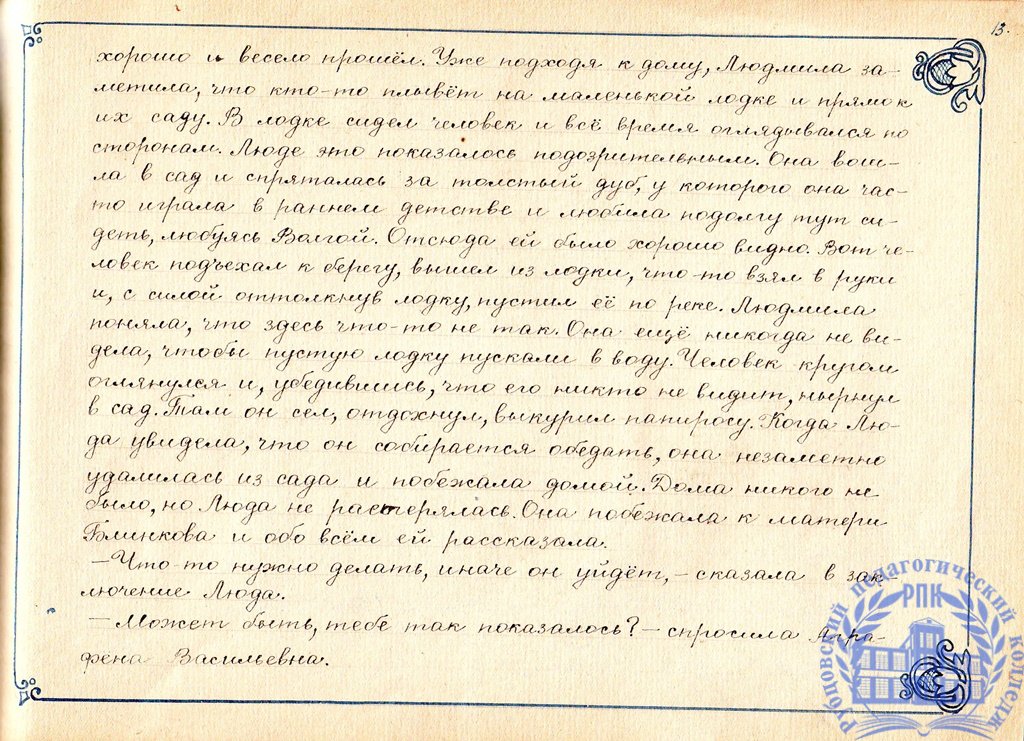 13.
хорошо и весело прошёл. Уже подходя к дому, Людмила за-
метила, что кто-то плывёт на маленькой лодке и прямо к
их саду. В лодке сидел человек и всё время оглядывался по
сторонам. Люде это показалось подозрительным. Она вош-
ла в сад и спряталась за толстый дуб, у которого она час-
то играла в раннем детстве и любила подолгу тут си-
деть, любуясь Волгой. Отсюда ей было хорошо видно. Вот че-
ловек подъехал к берегу, вышел из лодки, что-то взял в руки
и, с силой оттолкнув лодку, пустил её по реке. Людмила
поняла, что здесь что-то не так. Она ещё никогда не ви-
дела, чтобы пустую лодку пускали в воду. Человек кругом
оглянулся и, убедившись, что его никто не видит, нырнул
в сад. Там он сел, отдохнул, выкурил папиросу. Когда Лю-
да увидела, что он собирается обедать, она незаметно
удалилась из сада и побежала домой. Дома никого не
было, но Люда не растерялась. Она побежала к матери
Блинкова и обо всём ей рассказала.
— Что-то нужно делать, иначе он уйдёт, — сказала в зак-
лючение Люда.
— Может быть, тебе так показалось? — спросила Агра-
фена Васильевна.
Рубцовский педагогический колледж
РПК